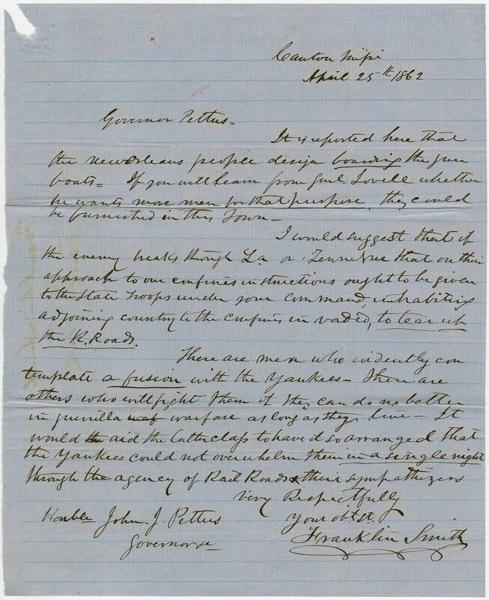 Canton Mipi
April 25th 1862
Governor Pettus -
It is reported here that
the new orleans people design boarding the gun
boats - If you will learn from Genl Lovell whether
he wants more men for that purpose, they could
be furnished in this Town -
I would suggest that if
the enemy breaks through La or Tennessee that on their
approach to our confines instructions ought to be given
to the State troops under your command inhabiting
adjoining country to the confines invaded, to tear up
the R. Roads.
There are men who evidently con
template a fusion with the Yankees - There are
others who will fight them if they can do no better
in guerrilla warfare as long as they live - It
would aid the latter class to have it so arranged that
the Yankees could not overwhelm them in a single night
through the agency of Rail Roads & their sympathizers
Very Respectfully
Your obt St.
Franklin Smith
Honble John J. Pettus
Governor &c